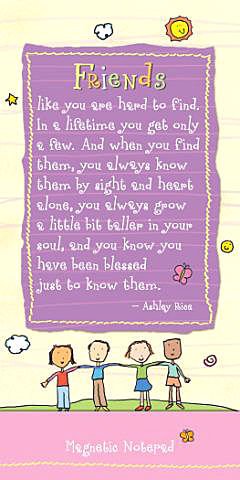 Friends
like you are hard to find.
In a lifetime you get only
a few. And when you find
them, you always know
them by sight and heart
alone, you always grow
a little bit taller in your
soul, and you know you
have been blessed
just to know them.
– Ashley Rice
Magnetic Notepad